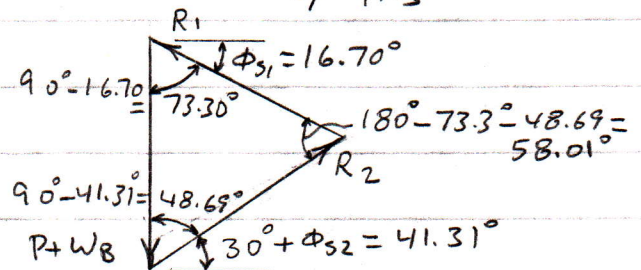 R1
ϕs1 = 16.70°
90°-16.70
= 73.30°
180°-73.3°-48.69=
58.01°
R2
90°-41.31= 48.69°
P+WB
30°+ϕs2 = 41.31°